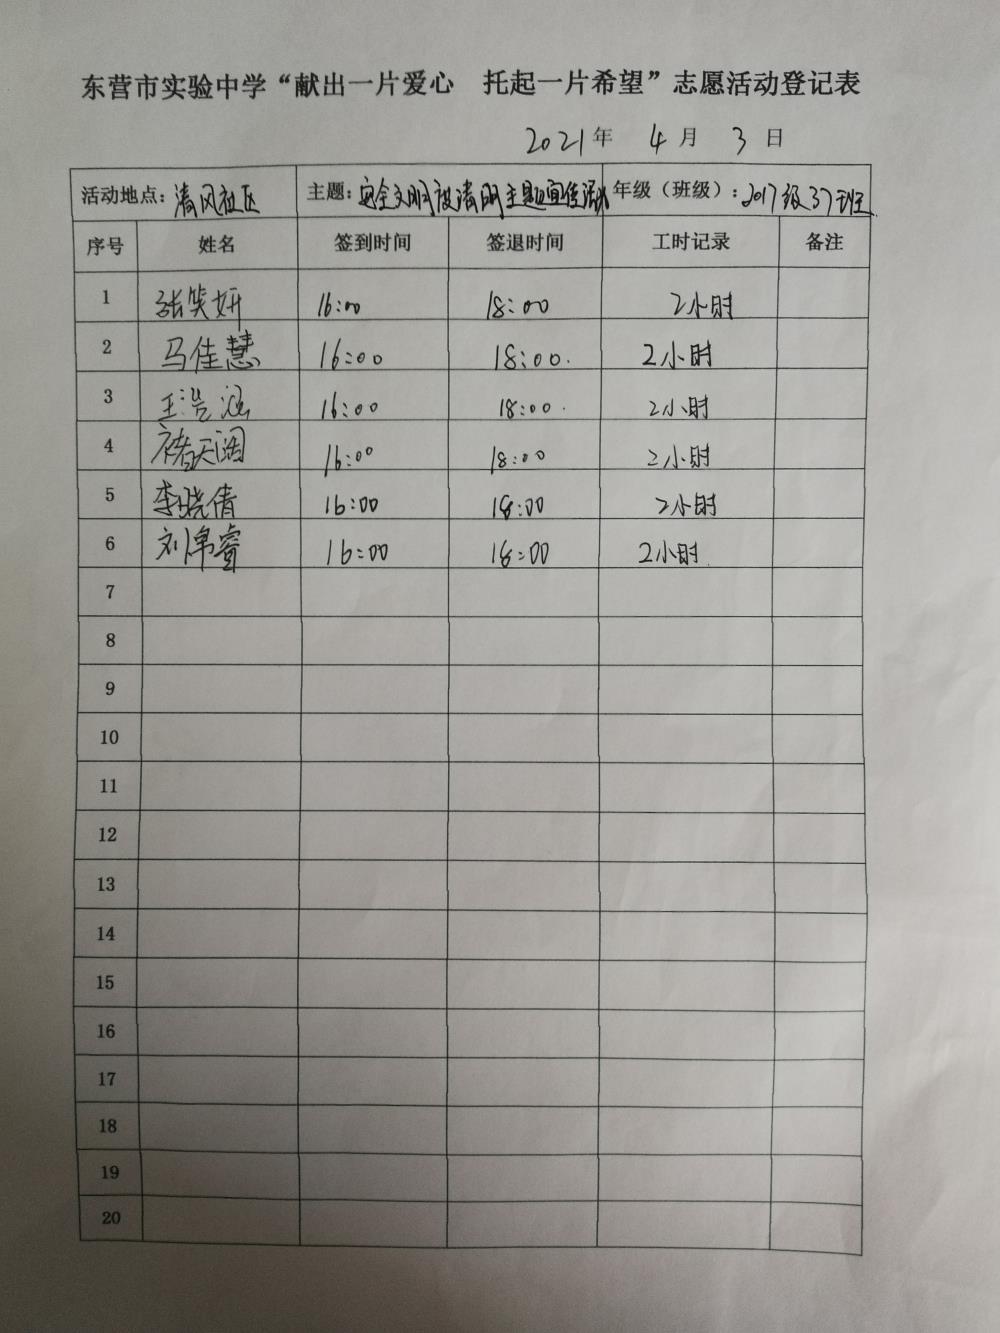 东营市实验中学“献出一片爱心 托起一片希望”志愿活动登记表
2021年 4月 3日
活动地点：清风社区 主题：安全文明度清明主题宣传活动 年级（班级）：2017级37班
序号 姓名 签到时间 签退时间 工时记录 备注
1 张笑妍 16:00 18:00 2小时
2 马佳慧 16:00 18:00. 2小时
3 王浩涵 16:00 18:00. 2小时
4 褚天阔 16:00 18:00 2小时
5 李晓倩 16:00 18:00 2小时
6 刘帛睿 16:00 18:00 2小时.
7
8
9
10
11
12
13
14
15
16
17
18
19
20